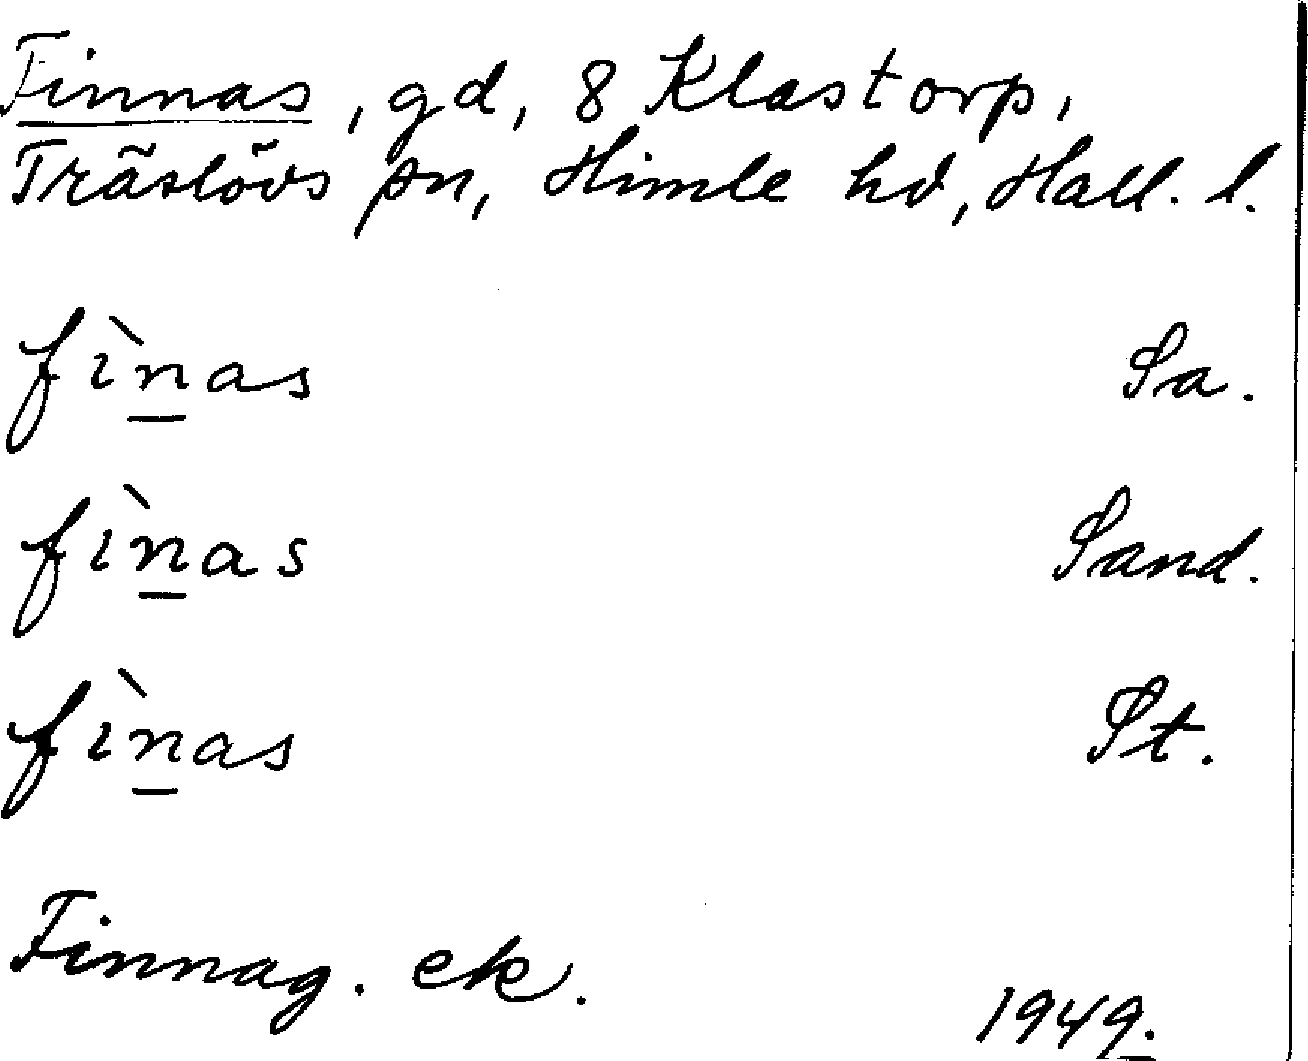 Finnas, gd, 8 Klastorp,
Träslövs sn, Himle hd, Hall. l.
fìn̲as Sa.
fìn̲as Sand.
fìn̲as St.
Finnag. ek.
1949.